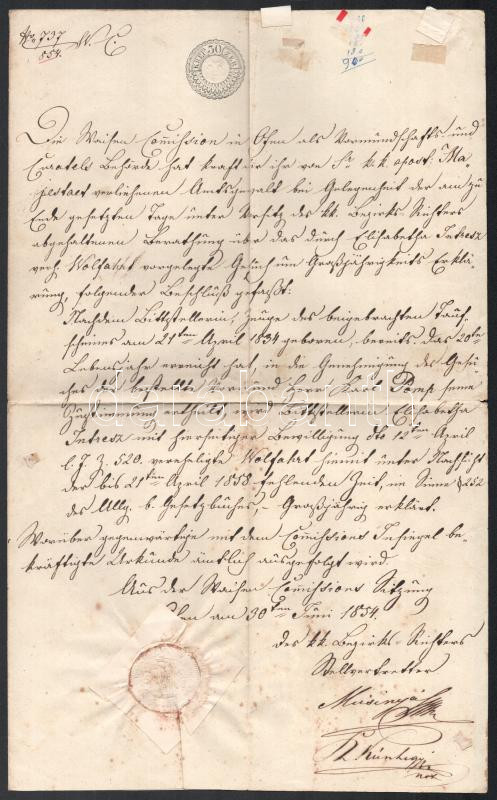 No 737
854.
W. C.
30
KREUZER
90
Die Waisen Commission in Ofen als Vormundschafts- und
Curatels Behörde hat kraft der ihr von Sr kk. apost. Ma-
jestaet verliehenen Amtsgewalt bei Gelegenheit der am zu
Ende gesetzten Tage unter Vorsitz des kk. Bezirks-Richters
abgehaltenen Berathung über das durch Elisabetha Intresz
verh. Wolfahrt vorgelegte Gesuch um Großjährigkeits Erklä-
rung, folgender Beschluß gefaßt:
Nachdem Bittstellerin, Zeuge des beigebrachten Tauf-
scheines am 21ten April 1834 geboren, bereits das 20te
Lebensjahr erreicht hat, in die Genehmigung des Gesu-
ches der bestellte Vormund Herr Karl Pomp seine
Zustimmung ertheilt, wird Bittstellerin Elisabetha
Intresz mit hierseitiger Bewilligung dto 12ten April
l. J. Z. 520. verehligte Wolfahrt hiemit unter Nachsicht
der bis 21ten April 1858 fehlenden Zeit, im Sinne § 252
des Allg. b. Gesetzbuches, Großjährig erklärt.
Worüber gegenwärtige mit dem Comissions Insiegel be-
kräftigte Urkunde ämtlich ausgefolgt wird.
Aus der Waisen-Comissions Sitzung
Ofen am 30ten Juni 1854.
des kk. Bezirks-Richters
Stellvertretter
darabanth